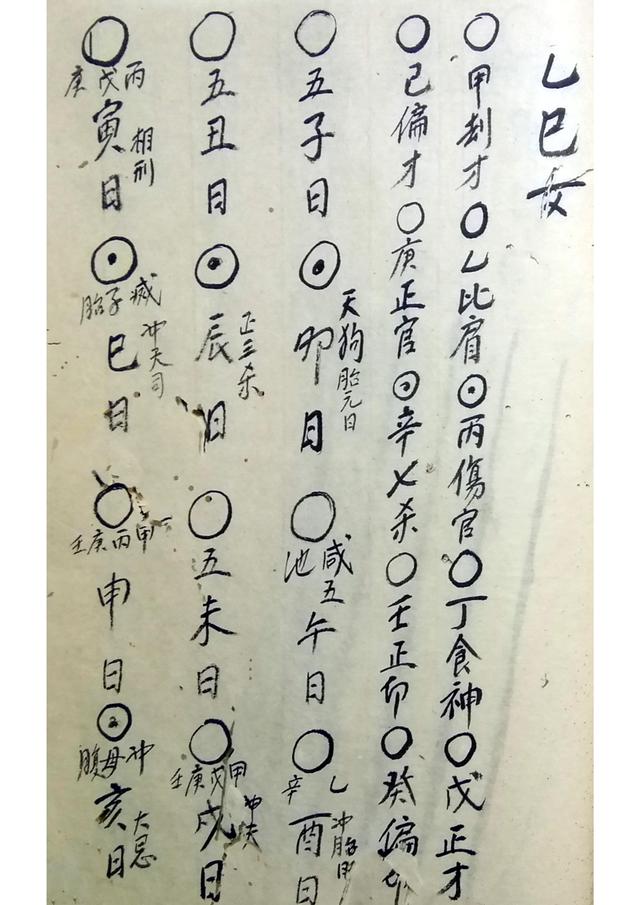 乙巳女
○甲刦才○乙比肩⊙丙傷官○丁食神○戊正才
○己偏才○庚正官⊙辛七杀○壬正印○癸偏印
○五子日⊙天狗胎元日卯日○咸池五午日○乙辛酉日冲胎甲
○五丑日⊙辰日正三杀○五未日○甲戊庚壬戌日冲夫
○丙戊庚寅日相刑⊙胎子巳日冲天司○甲丙庚壬申日⊙冲母腹亥日大忌